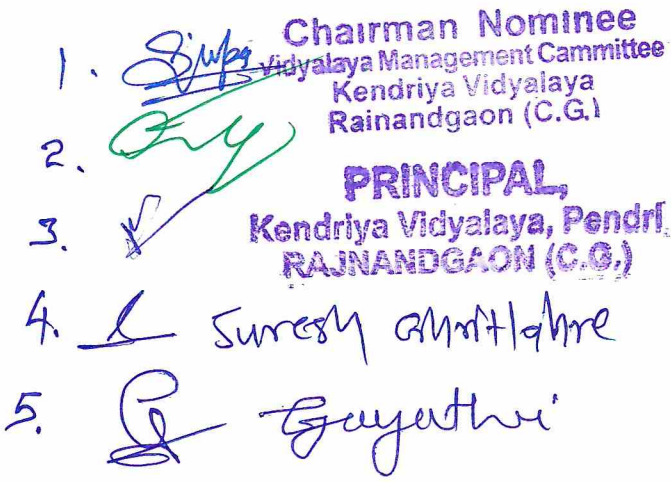 1. Chairman Nominee
Vidyalaya Management Cammittee
Kendriya Vidyalaya
Rainandgaon (C.G.)
2.
PRINCIPAL,
3. Kendriya Vidyalaya, Pendri,
RAJNANDGAON (C.G.)
4. Suresh
5. Gayathri